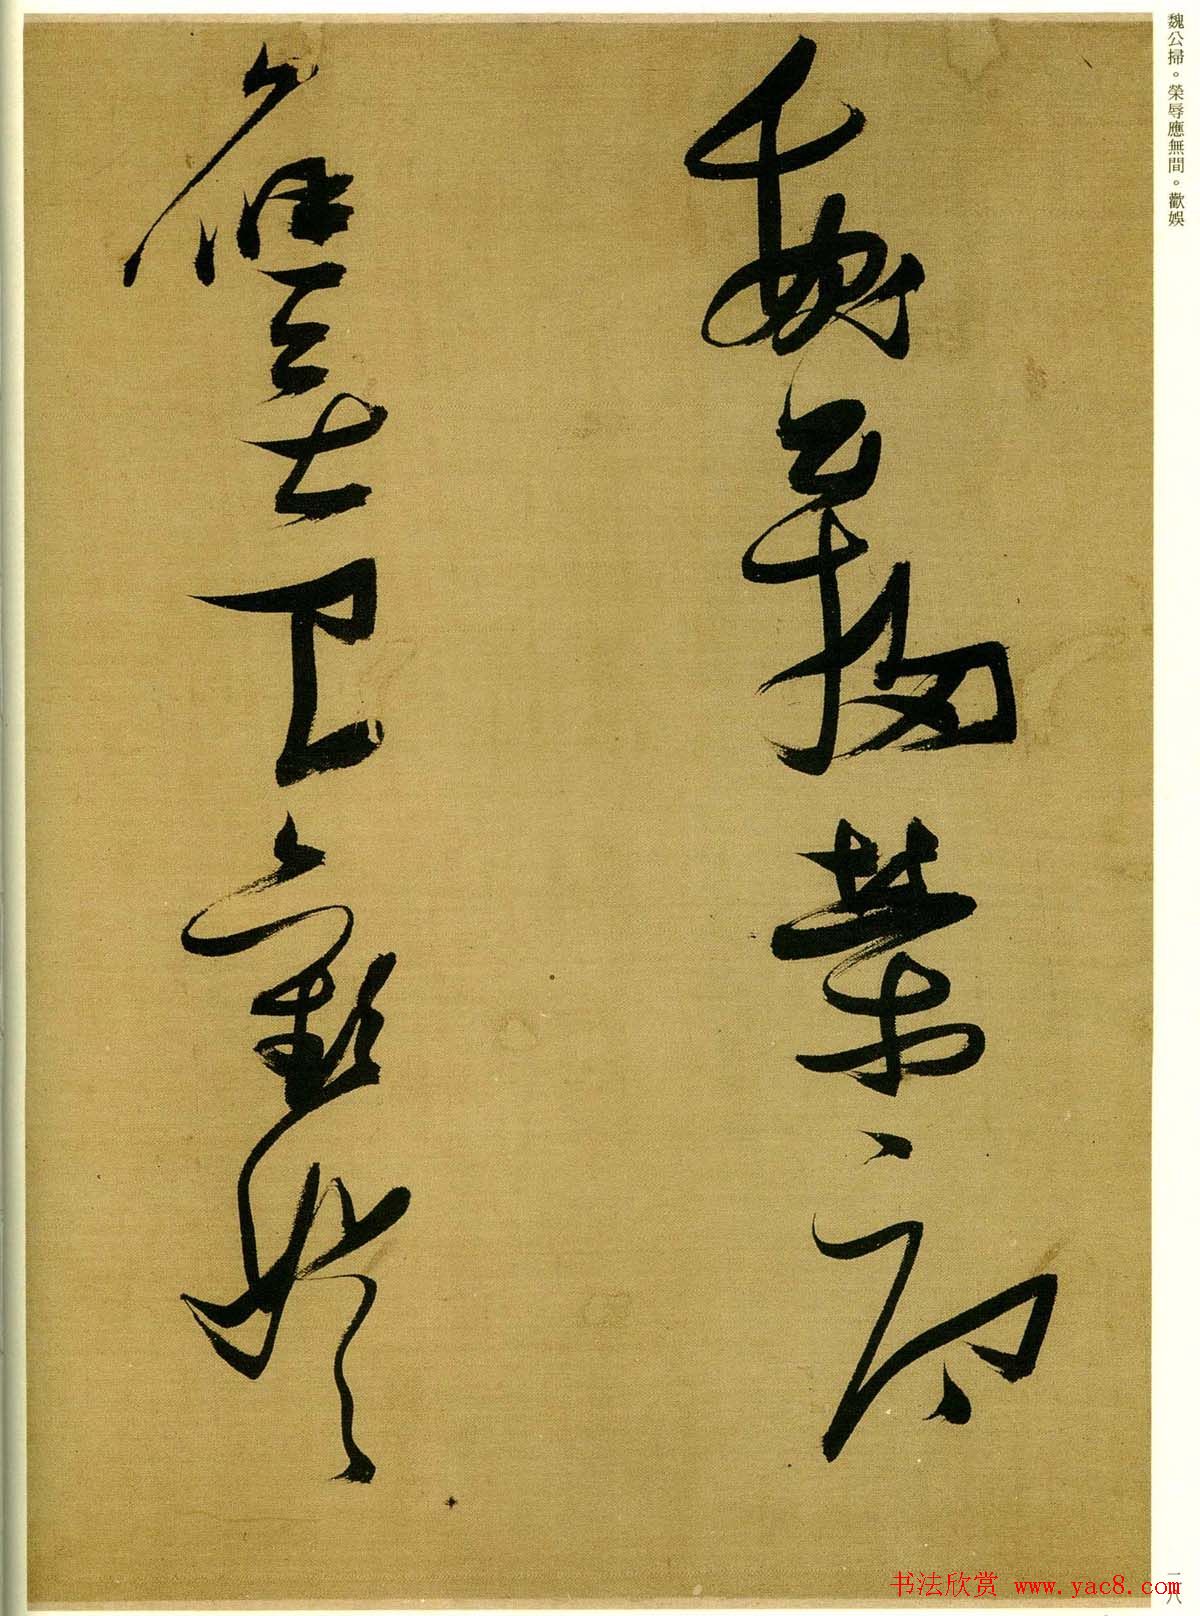 魏公掃榮辱
應無間歡娛
魏公掃。榮辱應無間。歡娛
一八
书法欣赏 www.yac8.com